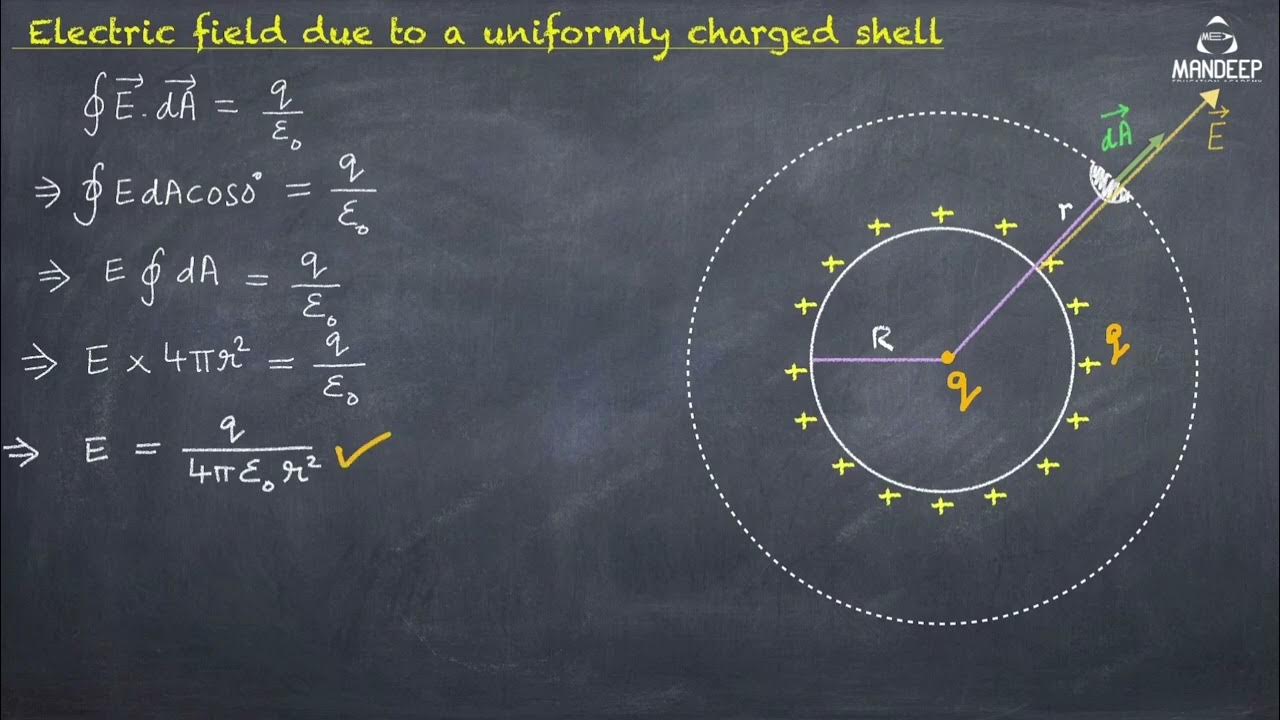 Electric field due to a uniformly charged shell
ME
MANDEEP
EDUCATION ACADEMY
∮ E⃗ . dA⃗ = q/ε₀
⇒ ∮ E dA cos0° = q/ε₀
⇒ E ∮ dA = q/ε₀
⇒ E × 4πr² = q/ε₀
⇒ E = q/4πε₀r² ✓
dA⃗
E⃗
r
+ + + + + + + + + + + + + + + +
R
q
q